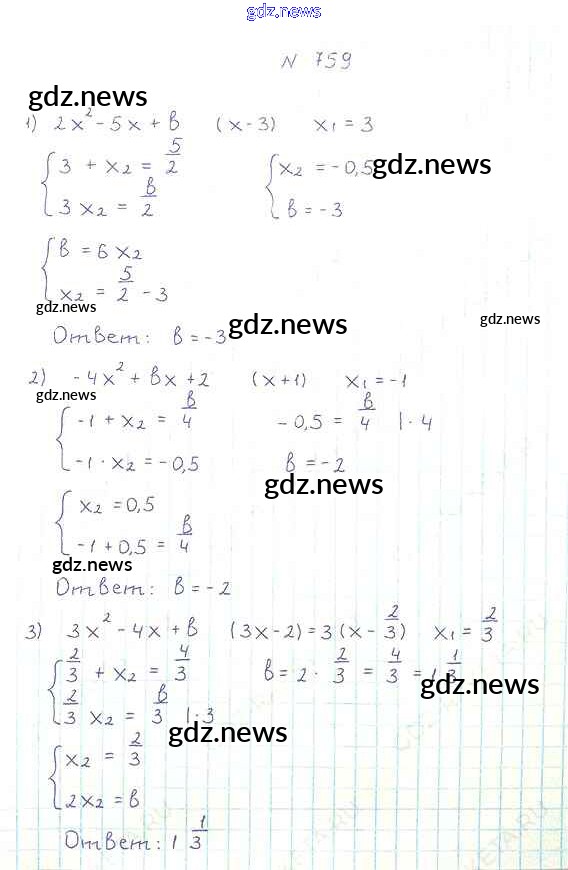 gdz.news
N 759
gdz.news
1) 2x² - 5x + b (x - 3) x₁ = 3
{ 3 + x₂ = 5/2 { x₂ = -0,5 gdz.news
3 x₂ = b/2 b = -3
{ b = 6 x₂
x₂ = 5/2 - 3
gdz.news
Ответ: b = -3 gdz.news gdz.news
2) -4x² + bx + 2 (x + 1) x₁ = -1
gdz.news
{ -1 + x₂ = b/4 -0,5 = b/4 | · 4
-1 · x₂ = -0,5 b = -2
gdz.news
{ x₂ = 0,5
-1 + 0,5 = b/4
gdz.news
Ответ: b = -2
3) 3x² - 4x + b (3x - 2) = 3 (x - 2/3) x₁ = 2/3
{ 2/3 + x₂ = 4/3 b = 2 · 2/3 = 4/3 = 1 1/3
gdz.news
2/3 x₂ = b/3 | · 3
gdz.news
{ x₂ = 2/3
2x₂ = b
Ответ: 1 1/3